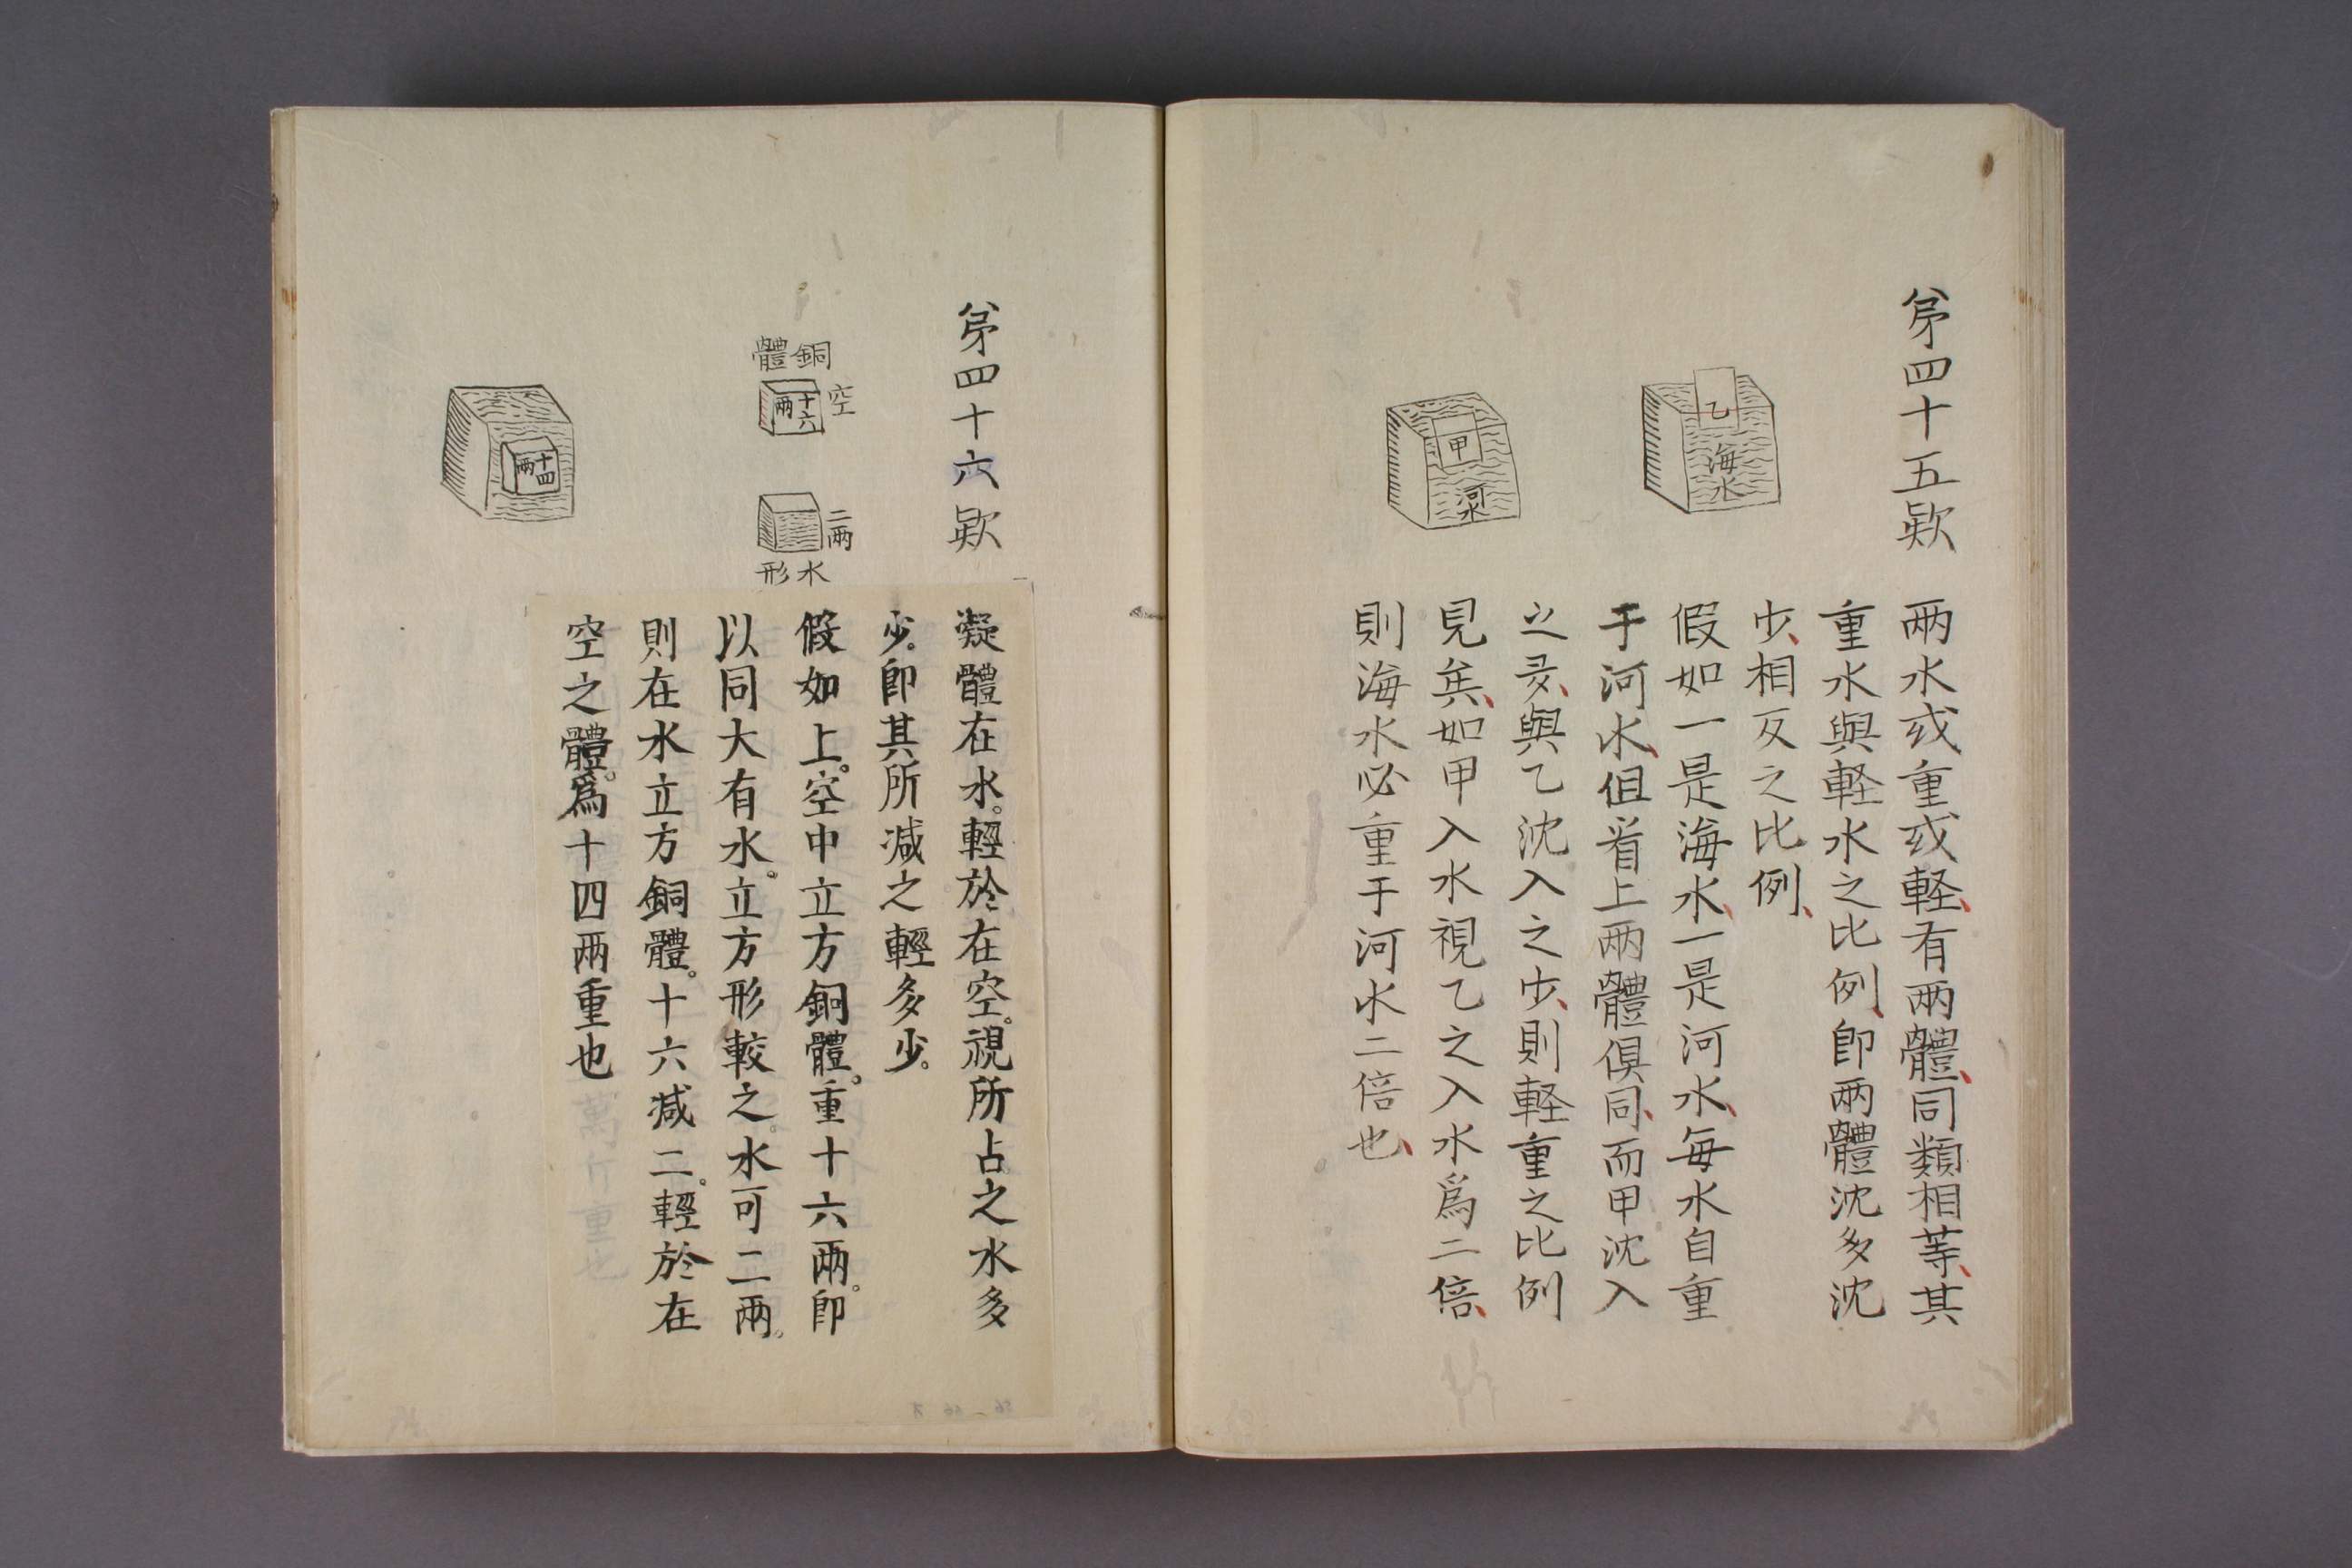 第四十五款
乙
海水
甲
河水
两水或重或軽有两體同類相等其
重水與軽水之比例即两體沈多沈
少相反之比例
假如一是海水一是河水每水自重
于河水但看上两體俱同而甲沈入
之多與乙沈入之少則軽重之比例
見矣如甲入水視乙之入水爲二倍
則海水必重于河水二倍也
第四十六款
銅體
空
十六
兩
二兩
水形
十四
兩
凝體在水輕於在空視所占之水多
少即其所減之輕多少
假如上空中立方銅體重十六兩即
以同大有水立方形較之水可二兩
則在水立方銅體十六減二輕於在
空之體爲十四兩重也